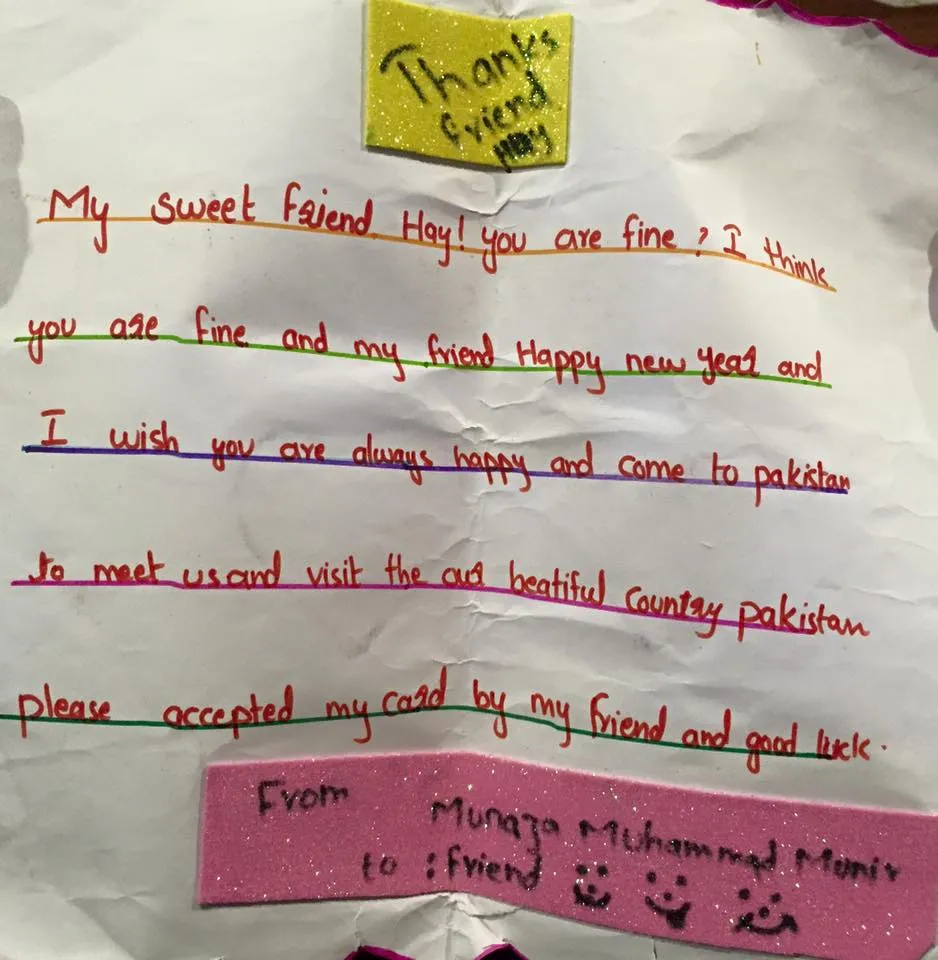 Thanks
friend
My sweet friend Hay! you are fine ? I think
you are fine and my friend Happy new year and
I wish you are always happy and come to pakistan
to meet us and visit the our beatiful country pakistan
please accepted my card by my friend and good luck.
From
Munaza Muhammad Munir
to : friend